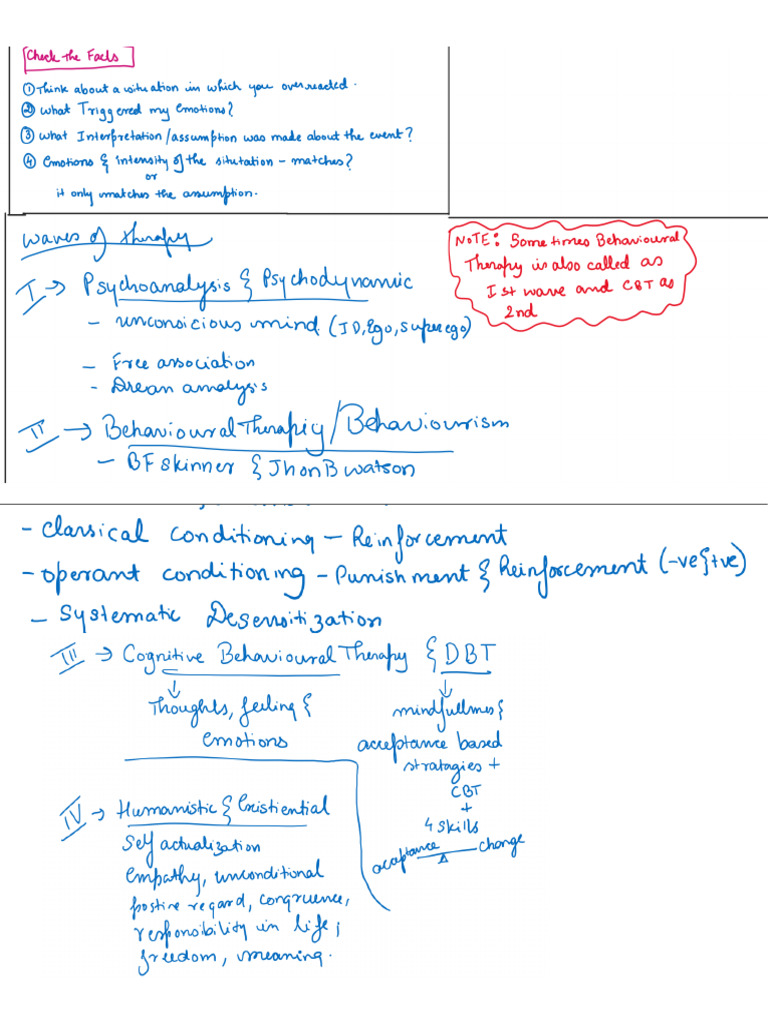 Check the Facts
① Think about a situation in which you overreacted.
② What Triggered my Emotions?
③ What Interpretation/assumption was made about the event?
④ Emotions & intensity of the situtation - matches?
or
it only matches the assumption.
Waves of therapy
NOTE: Sometimes Behavioural
Therapy is also called as
Ist wave and CBT as
2nd
I → Psychoanalysis & Psychodynamic
- unconsicious mind (ID, Ego, superego)
- Free association
- Drean analysis
II → Behavioural Therapiy/Behaviourism
- BF skinner & Jhon B watson
- classical conditioning - Reinforcement
- operant conditioning - Punishment & Reinforcement (-ve & +ve)
- Systematic Desensitization
III → Cognitive Behavioural Therapy & DBT
↓
Thoughts, feeling &
emotions
↓
mindfullness &
acceptance based
stratagies +
CBT
+
4 skills
acaptance change
IV → Humanistic & Existiential
Self actualization
empathy, unconditional
postive regard, congruence,
responsibility in life,
freedom, meaning.